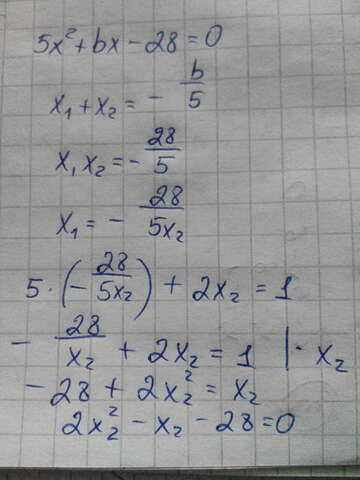 5x² + bx - 28 = 0
x₁ + x₂ = - b/5
x₁ x₂ = - 28/5
x₁ = - 28/5x₂
5 · (- 28/5x₂) + 2x₂ = 1
- 28/x₂ + 2x₂ = 1 | · x₂
- 28 + 2x₂² = x₂
2x₂² - x₂ - 28 = 0